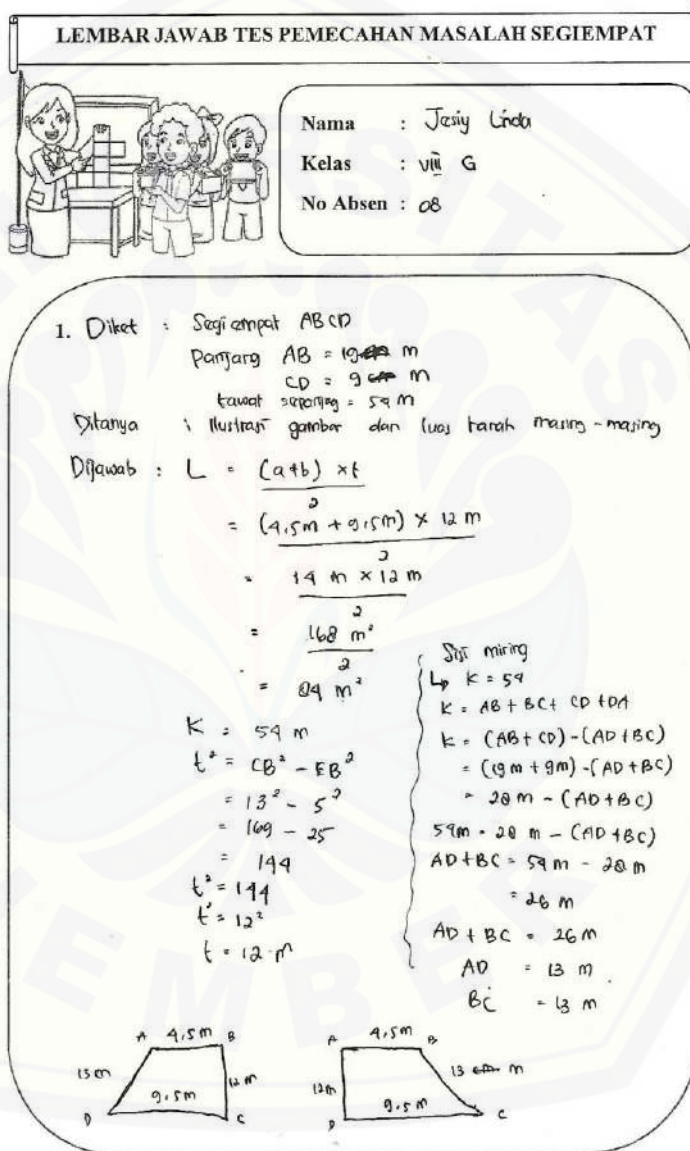 LEMBAR JAWAB TES PEMECAHAN MASALAH SEGIEMPAT
Nama : Jesiy Linda
Kelas : VIII G
No Absen : 08
1. Diket : Segi empat ABCD
Panjang AB = 19 m
CD = 9 m
kawat = 54 m
Ditanya : Ilustrasi gambar dan luas tanah masing-masing
Dijawab : L = (a+b) x t
2
= (4,5m + 9,5m) x 12 m
2
= 14 m x 12 m
2
= 168 m²
2
= 84 m²
K = 54 m
t² = CB² - EB²
= 13² - 5²
= 169 - 25
= 144
t² = 144
t² = 12²
t = 12 m
Sisi miring
↳ K = 54
K = AB + BC + CD + DA
K = (AB + CD) - (AD + BC)
= (19m + 9m) - (AD + BC)
= 28 m - (AD + BC)
54m = 28 m - (AD + BC)
AD + BC = 54 m - 28 m
= 26 m
AD + BC = 26 m
AD = 13 m
BC = 13 m
A 4,5m B
13 m 12 m
9,5m
D C
A 4,5m B
12m 13 m
9,5m
D C
UNIVERSITAS
JEMBER